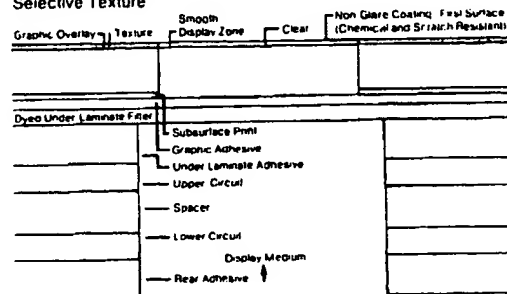 Selective Texture
Graphic Overlay
Texture
Smooth
Display Zone
Clear
Non Glare Coating First Surface
(Chemical and Scratch Resistant)
Dyed Under Laminate Filter
Subsurface Print
Graphic Adhesive
Under Laminate Adhesive
Upper Circuit
Spacer
Lower Circuit
Display Medium
Rear Adhesive